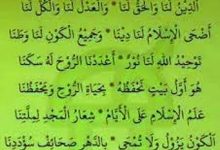 الدِّينُ لَنَا وَالْحَقُّ لَنَا * وَالْعَدْلُ لَنَا وَالْكُلُّ لَنَا
أَضْحَى الْإِسْلَامُ لَنَا دِينًا * وَجَمِيعُ الْكَوْنِ لَنَا وَطَنًا
تَوْحِيدُ اللهِ لَنَا نُورٌ * أَعْدَدْنَا الرُّوحَ لَهُ سَكَنًا
هُوَ أَوَّلُ بَيْتٍ نَحْفَظُهُ * بِحَيَاةِ الرُّوحِ وَيَحْفَظُنَا
عَلَمُ الْإِسْلَامِ عَلَى الْأَيَّامِ * شِعَارُ الْمَجْدِ لِمِلَّتِنَا
الْكَوْنُ يَزُولُ وَلَا تُمْحَى * بِالدَّهْرِ صَحَائِفُ سُؤْدَدِنَا